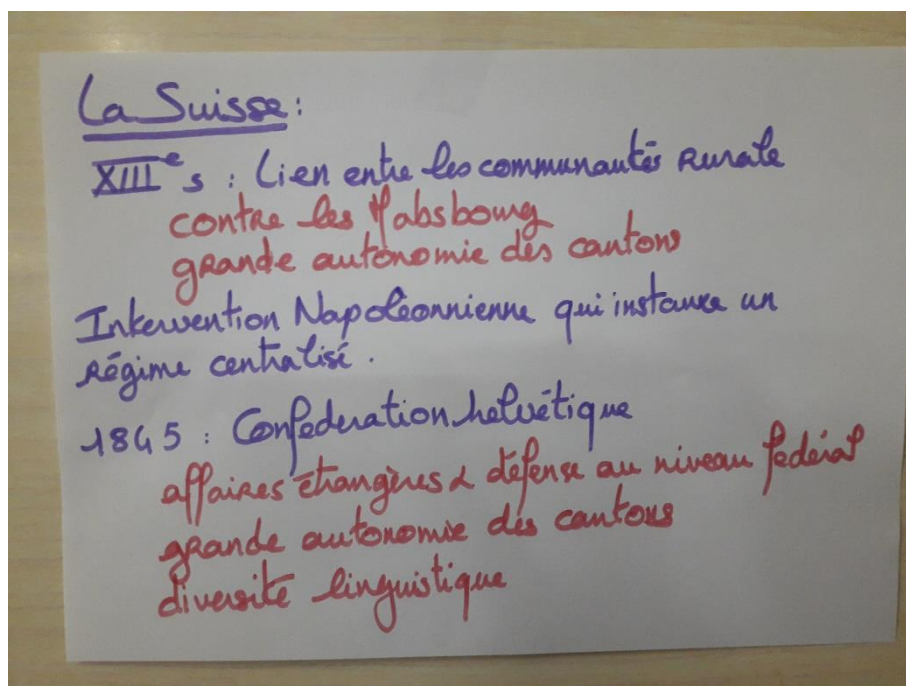 La Suisse :
XIIIe s : Lien entre les communautés Rurale
contre les Habsbourg
grande autonomie des cantons
Intervention Napoléonnienne qui instaure un
Régime centralisé.
1845 : Confederation helvétique
affaires étrangères & défense au niveau fédéral
grande autonomie des cantons
diversité linguistique